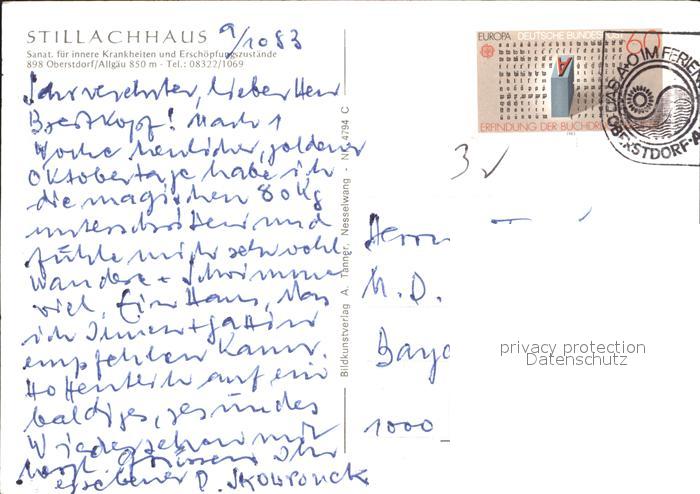 STILLACHHAUS
9/10 83
Sanat. für innere Krankheiten und Erschöpfungszustände
898 Oberstdorf/Allgäu 850 m - Tel.: 08322/1069
Sehr verehrter, lieber Herr
Breitkopf! Nach 1
Woche herrlicher, goldener
Oktobertage habe ich
die magischen 80 Kg
unterschritten und
fühle mich sehr wohl
wandere + schwimme
viel. Ein Haus, das
ich Ihnen + Gattin
empfehlen kann.
Hoffentlich auf ein
baldiges, gesundes
Wiedersehen mit
herzl. Grüssen Ihr
ergebener D. Skowronek
Bildkunstverlag A. Tanner, Nesselwang - Nr. 4794 C
EUROPA DEUTSCHE BUNDESPOST
60
A
ERFINDUNG DER BUCHDRU
1983
DAS A+O IM FERIEN
OBERSTDORF-A
3
Herrn
M. D.
Baye
1000
privacy protection
Datenschutz